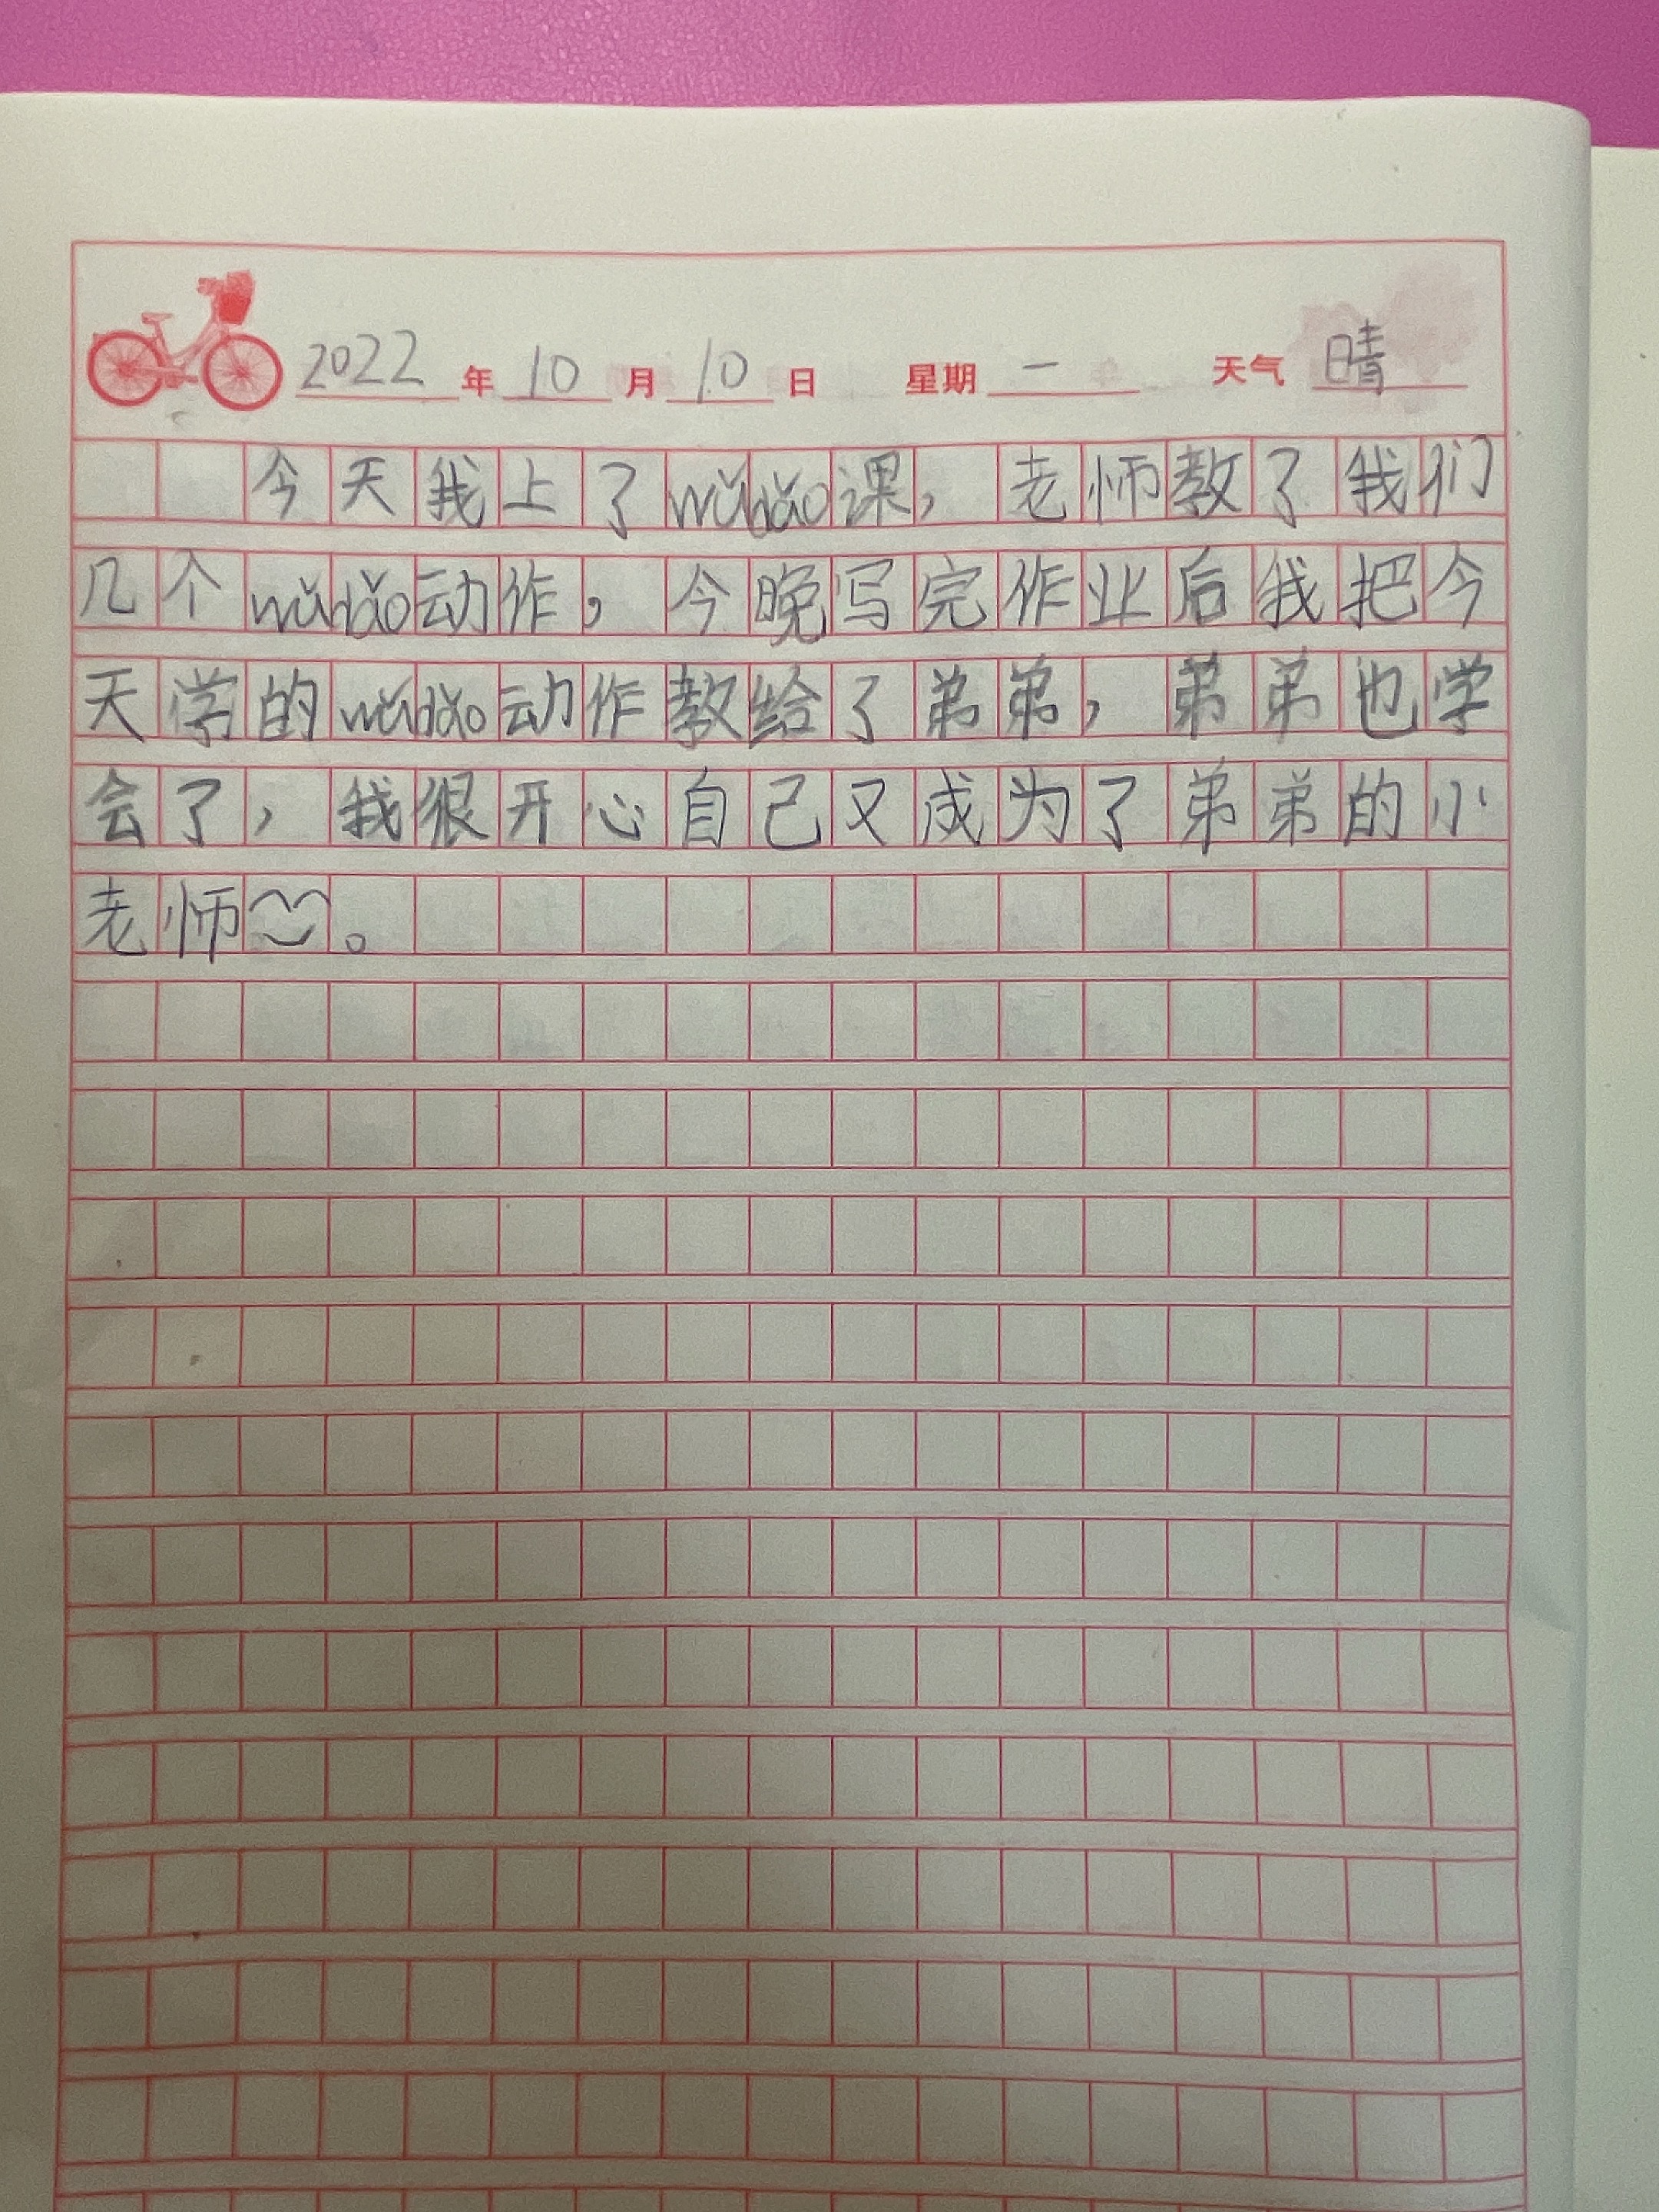 2022年10月10日 星期一 天气晴
今天我上了wǔdǎo课，老师教了我们
几个wǔdǎo动作，今晚写完作业后我把今
天学的wǔdǎo动作教给了弟弟，弟弟也学
会了，我很开心自己又成为了弟弟的小
老师。